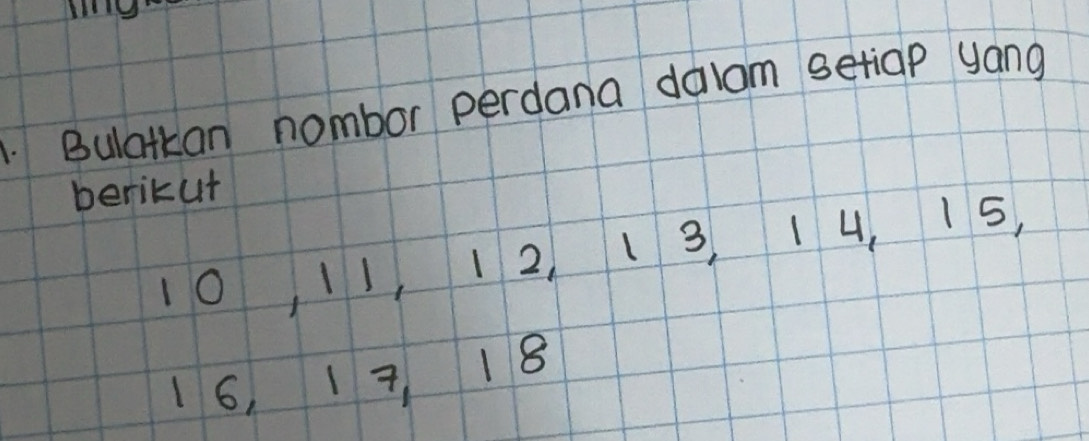 1. Bulatkan nombor perdana dalam setiap yang
berikut
10, 11, 12, 13, 14, 15,
16, 17, 18